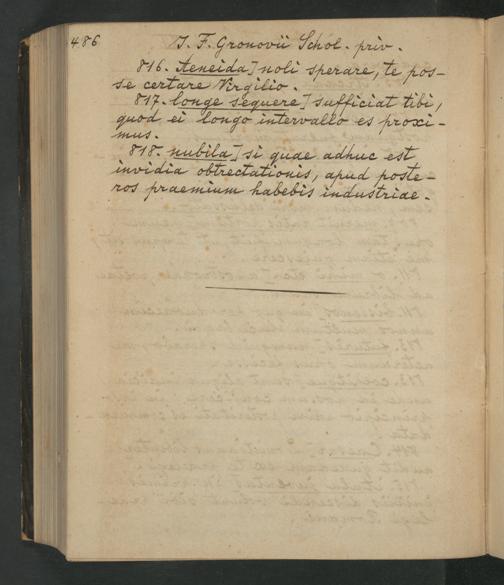 486 J. F. Gronovii Schol. priv.
816. Aeneida] noli sperare, te pos-
se certare Virgilio.
817. longe sequere] sufficiat tibi,
quod ei longo intervallo es proxi-
mus.
818. nubila] si quae adhuc est
invidia obtrectationis, apud poste-
ros praemium habebis industriae.